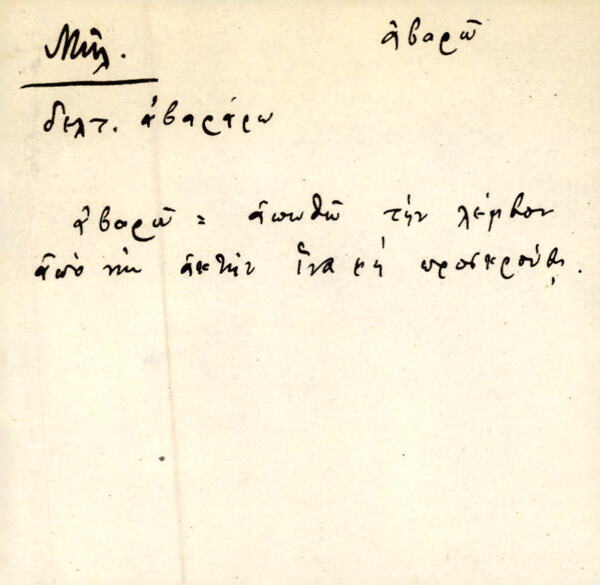 Μήλ. ἀβαρῶ
δελτ. ἀβαράρω
ἀβαρῶ = ἀπωθῶ τὴν λέμβον
ἀπὸ τὴν ἀκτὴν ἵνα μὴ προσκρούσῃ.